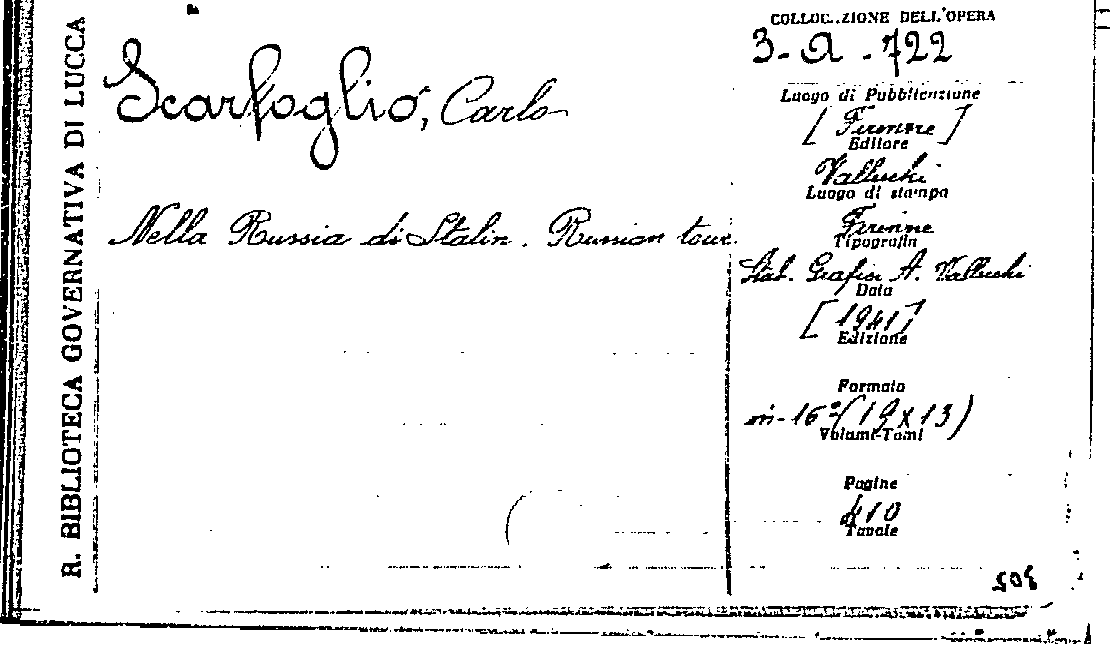 R. BIBLIOTECA GOVERNATIVA DI LUCCA
Scarfoglio, Carlo
Nella Russia di Stalin. Russian tour.
COLLOCAZIONE DELL'OPERA
3-a-722
Luogo di Pubblicazione
[Firenze]
Editore
Vallecchi
Luogo di stampa
Firenze
Tipografia
Stab. Grafici A. Vallecchi
Data
[1941]
Edizione
Formato
in-16°(19x13)
Volumi-Tomi
Pagine
410
Tavole